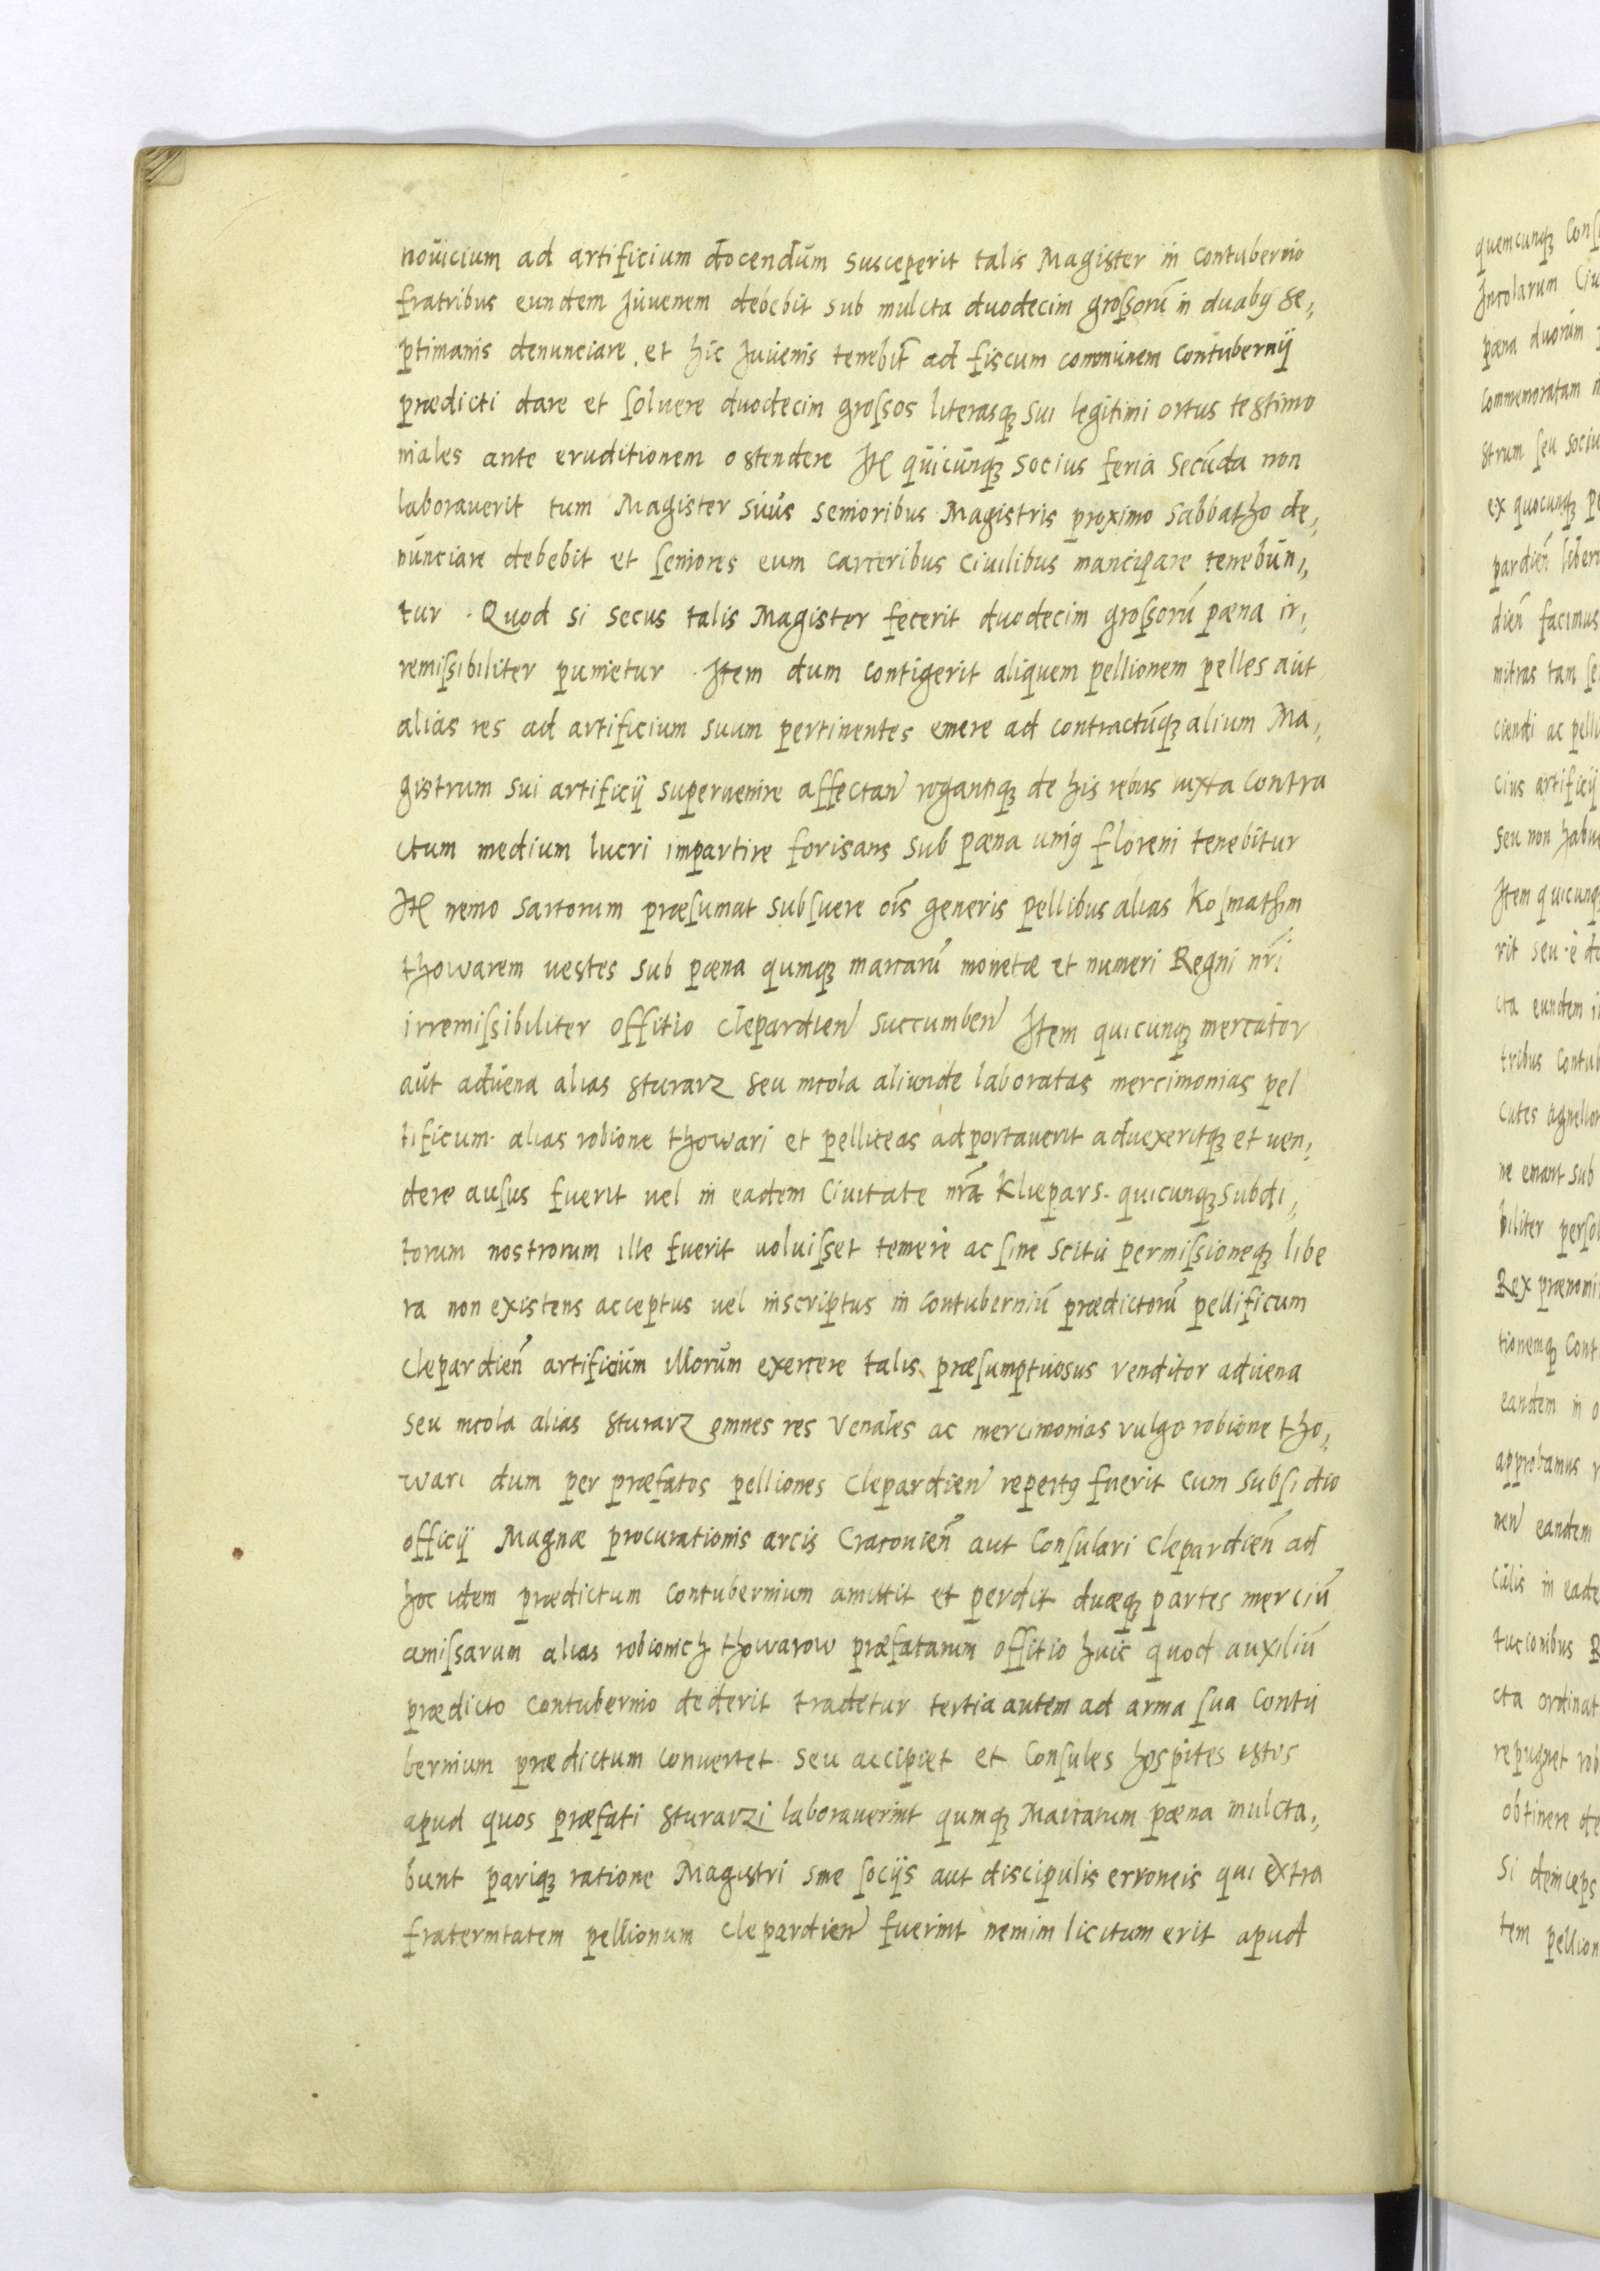 novicium ad artificium docendum susceperit talis Magister in contubernio
fratribus eundem Juvenem debebit sub mulcta duodecim grossorū in duabꝫ se,
ptimanis denunciare, et hic Juvenis tenebit ad fiscum communem contubernij
prædicti dare et solvere duodecim grossos literasqꝫ sui legitimi ortus testimo
niales ante eruditionem ostendere Itē quicunqꝫ socius feria Secūda non
laboraverit tum Magister suus senioribus Magistris proximo Sabbatho de,
nunciare debebit et seniores eum carceribus Civilibus mancipare tenebun,
tur. Quod si secus talis Magister fecerit duodecim grossorū pæna ir,
remissibiliter punietur. Item dum contigerit aliquem pellionem pelles aut
alias res ad artificium suum pertinentes emere ad contractūqꝫ alium Ma,
gistrum sui artificij supervenire affectan̄ rogantiqꝫ de his rebus iuxta contra
ctum medium lucri impartire forisans sub pæna uniꝰ floreni tenebitur
Itē nemo sartorum præsumat subsuere oīs generis pellibus alias Kosmathim
thowarem vestes sub pæna qumqꝫ marcarū monetæ et numeri Regni nr̄i
irremissibiliter offitio clepardien̄ succumben̄ Item quicunqꝫ mercator
aut advena alias sturarz seu incola aliunde laboratas mercimonias pel
lificum alias robione thowari et pelliceas adportaverit advexeritqꝫ et ven,
dere ausus fuerit vel in eadem Civitate nrā Klieparѕ. quicunqꝫ subdi,
torum nostrorum ille fuerit voluisset temere ac sine scitu permissioneqꝫ libe
ra non existens acceptus vel inscriptus in contuberniū prædictorū pellificum
clepardien̄ artificium illorum exercere talis præsumptuosus venditor advena
seu incola alias sturarz omnes res venales ac mercimonias vulgo robione tho,
wari dum per præfatos pelliones clepardien̄ repertꝰ fuerit cum subsidio
officij Magnæ procurationis arcis Cracovien̄ aut Consulari clepardien̄ ad
hoc idem prædictum contubernium amittit et perdit duæqꝫ partes merciū
amissarum alias robionich thowarow præfatarum offitio huic quod auxiliū
prædicto contubernio dederit tradetur tertia autem ad arma sua contu
bernium prædictum convertet seu accipiet et Consules hospites istos
apud quos præfati sturarzi laboraverint qumqꝫ Marcarum pæna mulcta,
bunt pariqꝫ ratione Magistri sine socijs aut discipulis erroneis qui extra
fraternitatem pellionum clepardien̄ fuerint nemini licitum erit apud